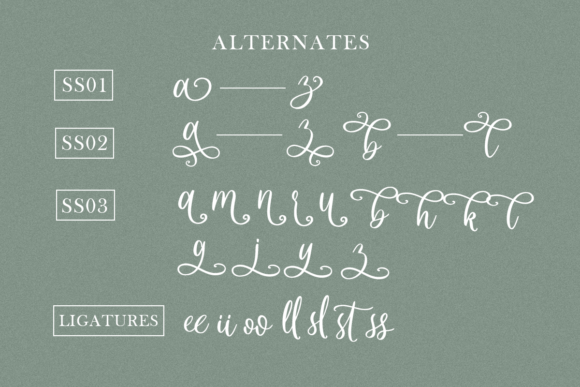 ALTERNATES
SS01 a z
SS02 a z b t
SS03 a m n r u b h k t
g j y z
LIGATURES ee ii oo ll sl st ss